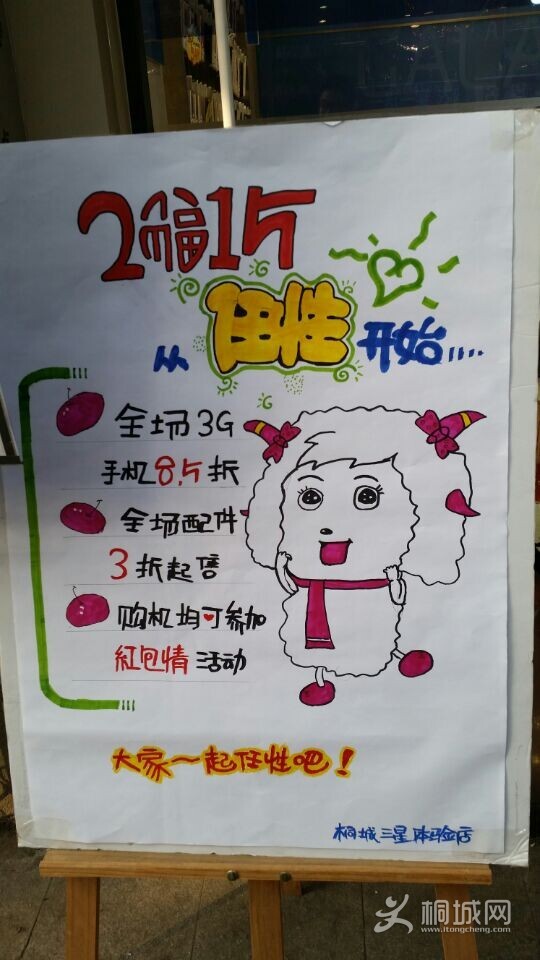 2福15
从任性开始....
全场3G
手机8.5折
全场配件
3折起售
购机均可参加
红包情活动
大家一起任性吧！
桐城三星体验店
桐城网
www.itongcheng.com